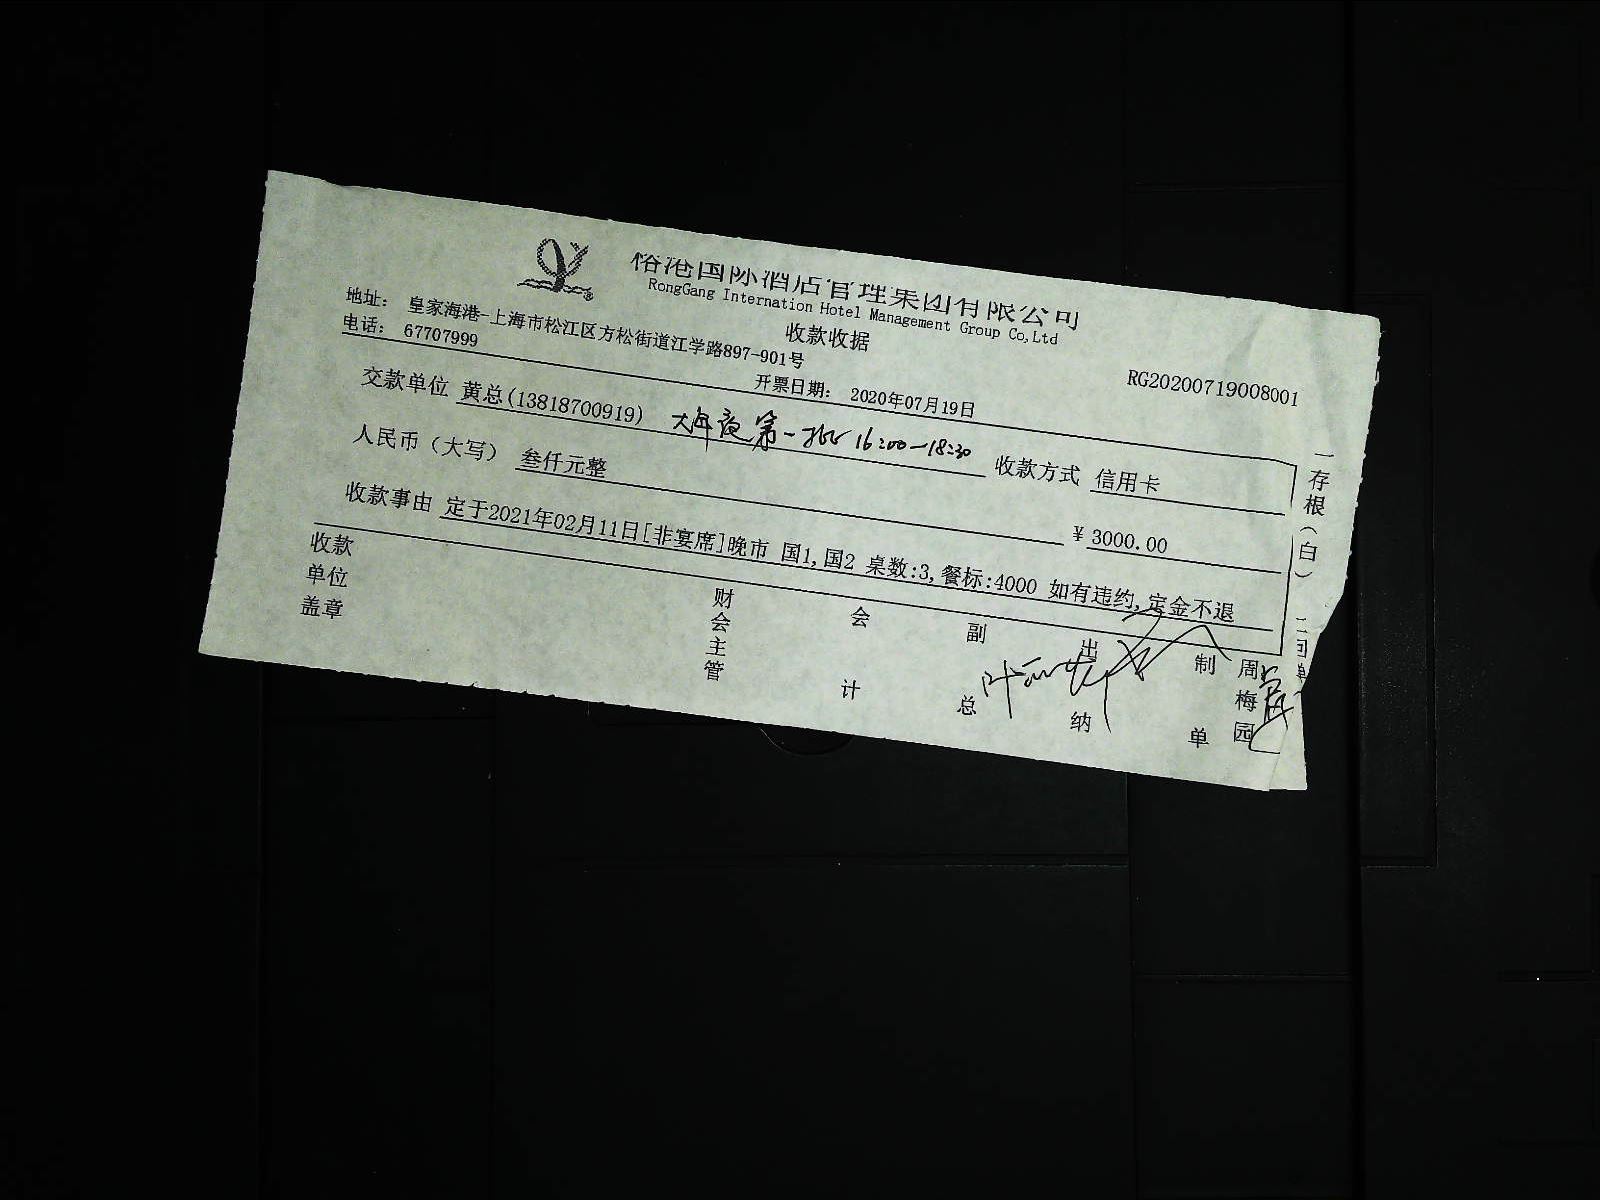 裕港国际酒店管理集团有限公司
RongGang Internation Hotel Management Group Co,Ltd
收款收据
地址： 皇家海港-上海市松江区方松街道江学路897-901号
电话： 67707999
开票日期： 2020年07月19日
RG20200719008001
交款单位 黄总(13818700919) 大年夜第一批 16:00-18:30 收款方式 信用卡
人民币（大写） 叁仟元整 ¥3000.00
收款事由 定于2021年02月11日[非宴席]晚市 国1,国2 桌数:3,餐标:4000 如有违约,定金不退
收款单位盖章
财会主管
会计
副总
出纳
制单
周梅园
一存根（白）